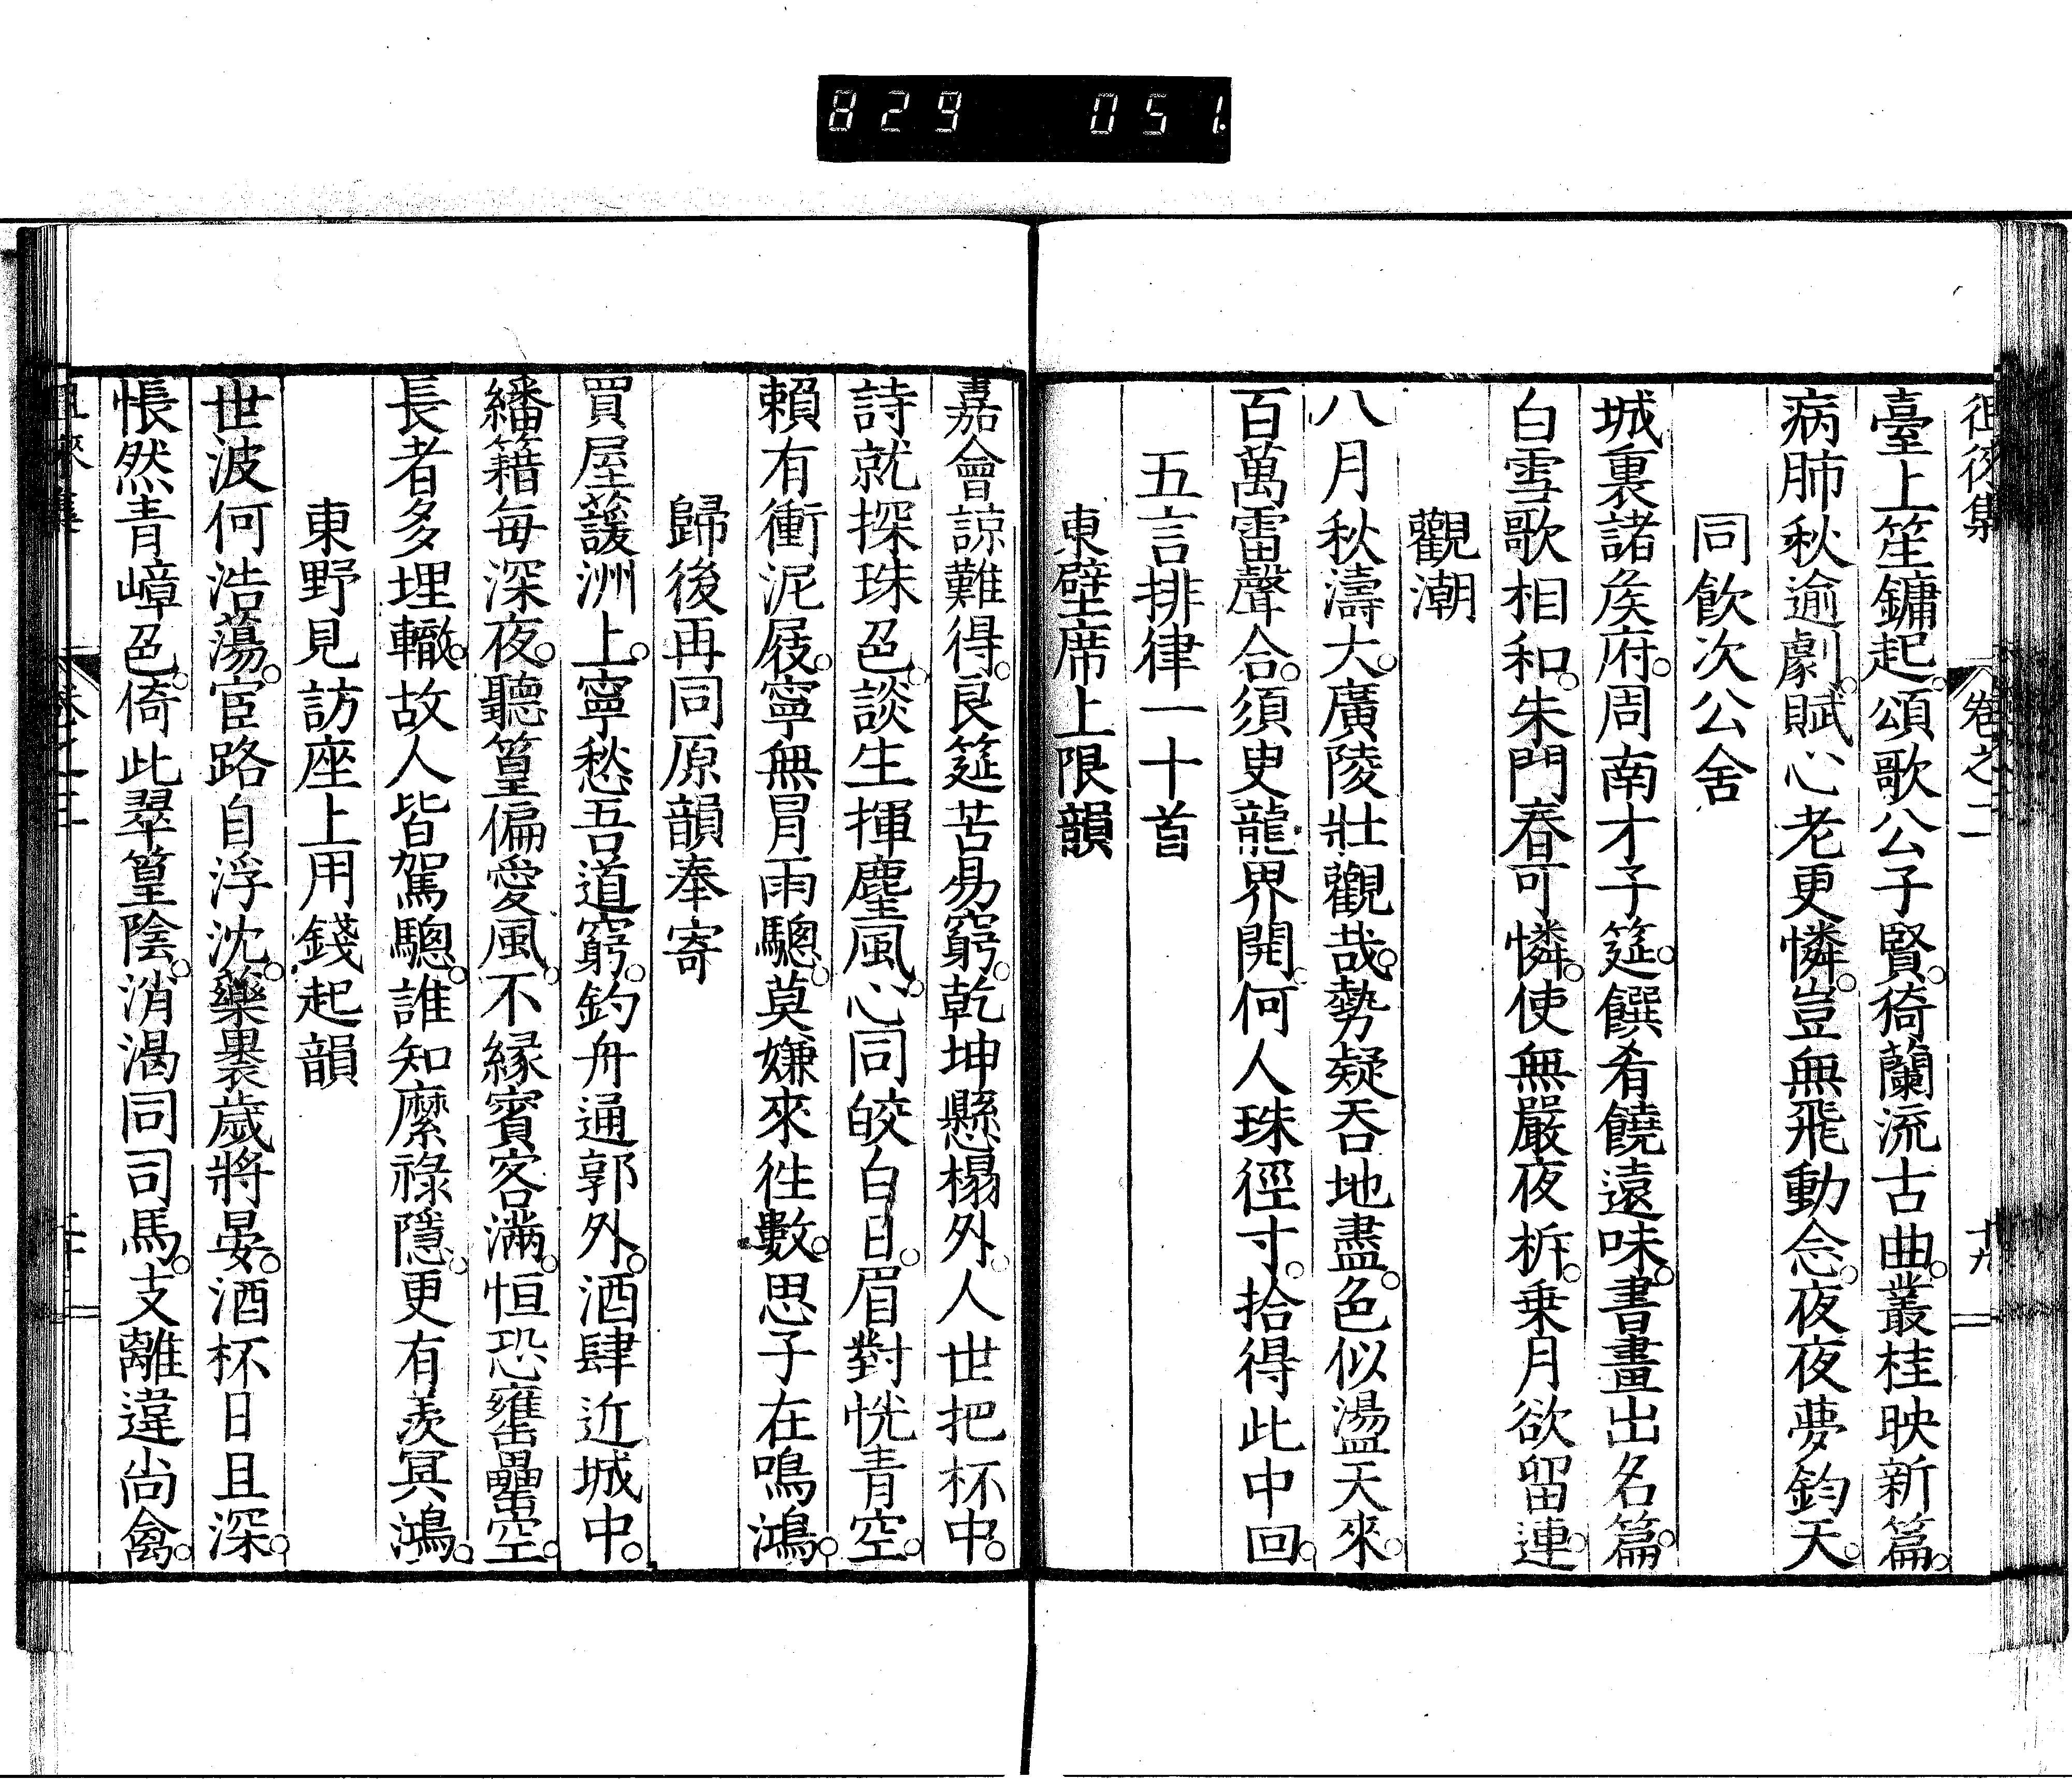 829 051.
徂徠集 卷之二 十九
臺上笙鏞起。頌歌公子賢。猗蘭流古曲。叢桂映新篇。
病肺秋逾劇。賦心老更憐。豈無飛動念。夜夜夢鈞天。
同飲次公舍
城裏諸矦府。周南才子筵。饌肴饒遠味。書畫出名篇。
白雪歌相和。朱門春可憐。使無嚴夜柝。乗月欲留連。
觀潮
八月秋濤大。廣陵壯觀哉。勢疑吞地盡。色似盪天來。
百萬雷聲合。須臾龍界開。何人珠徑寸。拾得此中回。
五言排律一十首
東壁席上限韻
嘉會諒難得。良筵苦易窮。乾坤懸榻外。人世把杯中。
詩就探珠色。談生揮麈風。心同皎白日。眉對恍青空。
賴有衝泥屐。寧無冒雨驄。莫嫌來徃數。思子在鳴鴻。
歸後再同原韻奉寄
買屋蘐洲上。寧愁吾道窮。釣舟通郭外。酒肆近城中。
繙籍每深夜。聽篁偏愛風。不緣賓客滿。恒恐甕罍空。
長者多埋轍。故人皆駕驄。誰知縻祿隱。更有羨冥鴻。
東野見訪座上用錢起韻
世波何浩蕩。宦路自浮沈。藥裹歲將晏。酒杯日且深。
悵然青嶂色。倚此翠篁陰。消渴同司馬。支離違尚禽。